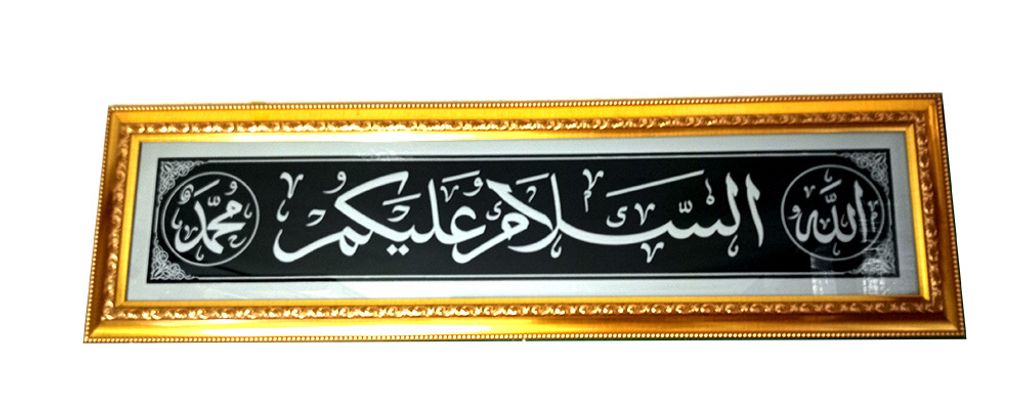 الله السلام عليكم محمد